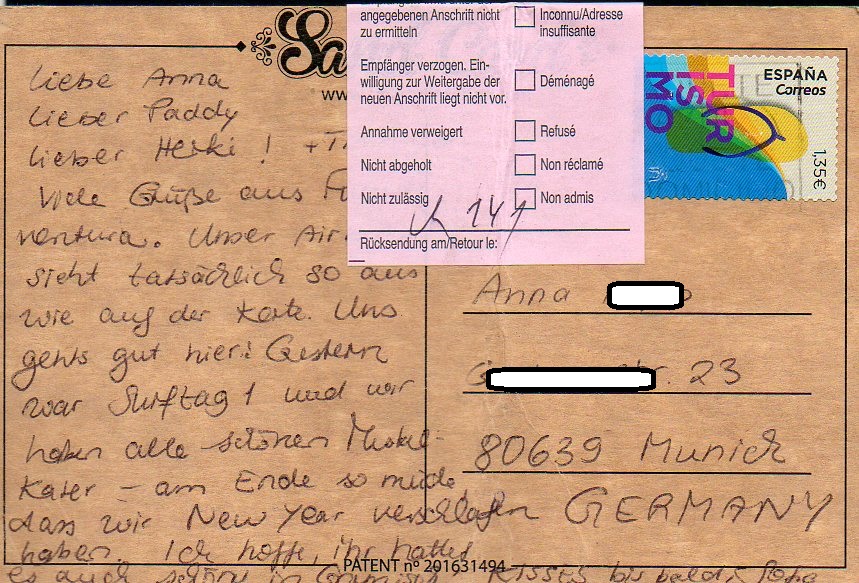 Sa
ww
angegebenen Anschrift nicht
zu ermitteln
Inconnu/Adresse
insuffisante
Empfänger verzogen. Ein-
willigung zur Weitergabe der
neuen Anschrift liegt nicht vor.
Déménagé
Annahme verweigert
Refusé
Nicht abgeholt
Non réclamé
Nicht zulässig
Non admis
141
Rücksendung am/Retour le:
ESPAÑA
Correos
TURISMO
1,35€
Liebe Anna
Lieber Paddy
Lieber Heski! + T
Viele Grüße aus Fu
ventura. Unser Air
sieht tatsächlich so aus
wie auf der Karte. Uns
gehts gut hier! Gestern
war Surftag 1 und wir
haben alle schönen Muskel-
Kater – am Ende so müde,
dass wir New Year verschlafen
haben. Ich hoffe, ihr hattet
es auch schön in
Kisses bis bald,
Anna
23
80639 Munich
GERMANY
PATENT nº 201631494